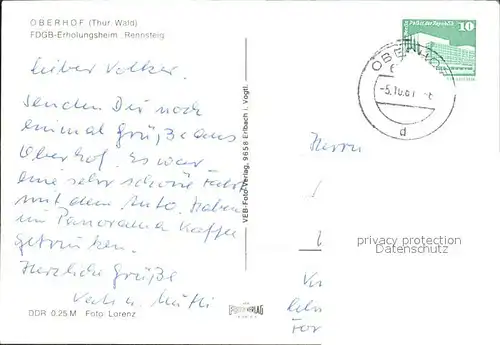 OBERHOF (Thür. Wald)
FDGB-Erholungsheim „Rennsteig"
Lieber Volker.
Senden Dir noch
einmal Grüße aus
Oberhof. Es war
eine sehr schöne Fahrt
mit dem Auto. Haben
im Panorama Kaffee
getrunken.
Herzliche Grüße
u. Mutti
DDR 0,25 M Foto: Lorenz
VEB-Foto-Verlag, 9658 Erlbach i. Vogtl.
FOTO-VERLAG
10
OBERHOF
-5.10.
d
Herrn
privacy protection
Datenschutz